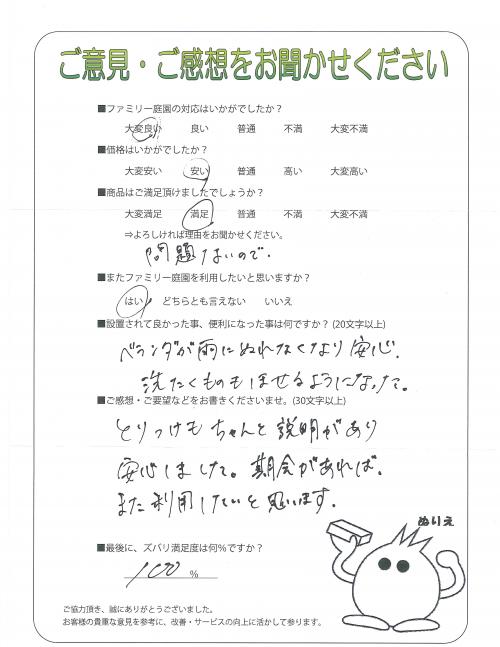 ご意見・ご感想をお聞かせください
■ファミリー庭園の対応はいかがでしたか？
大変良い 良い 普通 不満 大変不満
■価格はいかがでしたか？
大変安い 安い 普通 高い 大変高い
■商品はご満足頂けましたでしょうか？
大変満足 満足 普通 不満 大変不満
⇒よろしければ理由をお聞かせください。
問題ないので。
■またファミリー庭園を利用したいと思いますか？
はい どちらとも言えない いいえ
■設置されて良かった事、便利になった事は何ですか？(20文字以上)
ベランダが雨にぬれなくなり安心。
洗たくものもほせるようになった。
■ご感想・ご要望などをお書きくださいませ。(30文字以上)
とりつけもちゃんと説明があり
安心しました。期会があれば、
また利用したいと思います。
ぬりえ
■最後に、ズバリ満足度は何％ですか？
100 %
ご協力頂き、誠にありがとうございました。
お客様の貴重な意見を参考に、改善・サービスの向上に活かして参ります。